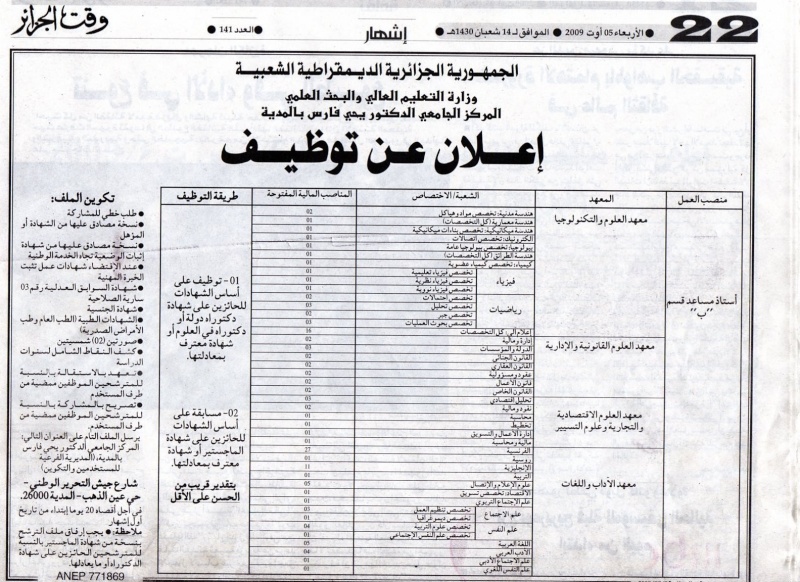 22
الأربعاء 05 أوت 2009 الموافق لـ 14 شعبان 1430هـ
إشهار
العدد 141
وقت الجزائر
الجمهورية الجزائرية الديمقراطية الشعبية
وزارة التعليم العالي والبحث العلمي
المركز الجامعي الدكتور يحي فارس بالمدية
إعلان عن توظيف
منصب العمل المعهد الشعبة/الاختصاص المناصب المالية المفتوحة طريقة التوظيف
أستاذ مساعد قسم "ب"
معهد العلوم والتكنولوجيا
هندسة مدنية: تخصص مواد وهياكل 02
هندسة معمارية (كل التخصصات) 01
هندسة ميكانيكية: تخصص بناءات ميكانيكية 01
الكترونيك: تخصص اتصالات 01
بيولوجيا: تخصص بيولوجيا عامة 01
هندسة الطرائق (كل التخصصات) 01
كيمياء: تخصص كيمياء عضوية 01
فيزياء
تخصص فيزياء تعليمية 01
تخصص فيزياء نظرية 01
تخصص فيزياء نووية 01
رياضيات
تخصص احتمالات 02
تخصص تحليل 03
تخصص جبر 02
تخصص بحوث العمليات 03
إعلام آلي: كل التخصصات 16
معهد العلوم القانونية والإدارية
إدارة ومالية 02
الدولة والمؤسسات 03
القانون الجنائي 02
القانون العقاري 02
عقود ومسؤولية 02
قانون الأعمال 02
القانون الخاص 02
معهد العلوم الاقتصادية والتجارية وعلوم التسيير
تحليل اقتصادي 03
نقود ومالية 02
محاسبة 01
تخطيط 01
إدارة الأعمال والتسويق 01
مالية ومحاسبة 01
معهد الآداب واللغات
الفرنسية 27
روسية 01
الإنجليزية 11
التربية 01
علوم الإعلام والاتصال 05
الاقتصاد: تخصص تسويق 01
علم الاجتماع التربوي 01
علم الاجتماع
تخصص تنظيم العمل 03
تخصص ديموغرافيا 01
علم النفس
تخصص علوم التربية 04
تخصص علم النفس الاجتماعي 01
اللغة العربية 05
الأدب العربي 04
علم الاجتماع الأدبي 01
علم النفس اللغوي 01
01- توظيف على
أساس الشهادات
للحائزين على شهادة
دكتوراه دولة أو
دكتوراه في العلوم أو
شهادة معترف
بمعادلتها.
02- مسابقة على
أساس الشهادات
للحائزين على شهادة
الماجستير أو شهادة
معترف بمعادلتها.
بتقدير قريب من
الحسن على الأقل
تكوين الملف:
● طلب خطي للمشاركة
● نسخة مصادق عليها من الشهادة أو
المؤهل
● نسخة مصادق عليها من شهادة
إثبات الوضعية تجاه الخدمة الوطنية
● عند الإقتضاء شهادات عمل تثبت
الخبرة المهنية
● شهادة السوابق العدلية رقم 03
سارية الصلاحية
● شهادة الجنسية
● الشهادات الطبية (الطب العام وطب
الأمراض الصدرية)
● صورتين (02) شمسيتين
● كشف النقاط الشامل لسنوات
الدراسة
● تعهد بالاستقالة بالنسبة
للمترشحين الموظفين ممضية من
طرف المستخدم
● تصريح بالمشاركة بالنسبة
للمترشحين الموظفين ممضية من
طرف المستخدم.
يرسل الملف التام على العنوان التالي:
المركز الجامعي الدكتور يحي فارس
بالمدية، (المديرية الفرعية
للمستخدمين والتكوين)
شارع جيش التحرير الوطني -
حي عين الذهب- المدية 26000.
في أجل أقصاه 20 يوما إبتداء من تاريخ
أول إشهار
ملاحظة: ● يجب إرفاق ملف الترشح
بنسخة من شهادة الماجستير بالنسبة
للمترشحين الحائزين على شهادة
الدكتوراه أو ما يعادلها.
ANEP 771869